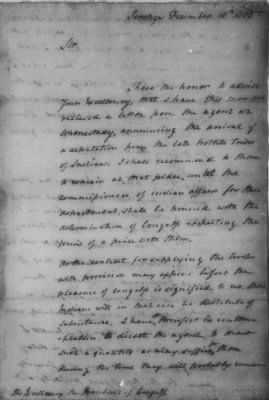 Saratoga December 16th 1783
Sir
I have the honor to advise
Your Excellency, that I have this moment
received a letter from the agent at
Schenectady, announcing the arrival of
a deputation from the late hostile tribes
of Indians. I shall recommend to them
to remain at that place, until the
commissioners of indian affairs for this
department, shall be honored with the
determination of Congress respecting the
terms of a peace with them.
As the contract for supplying the troops
with provision may expire before the
pleasure of congress is signified to us, these
Indians will in that case be destitute of
subsistence, I have, therefore in contem-
plation to direct the agent, to
such a quantity as may suffice them
during the time they will probably remain
His Excellency the President of Congress